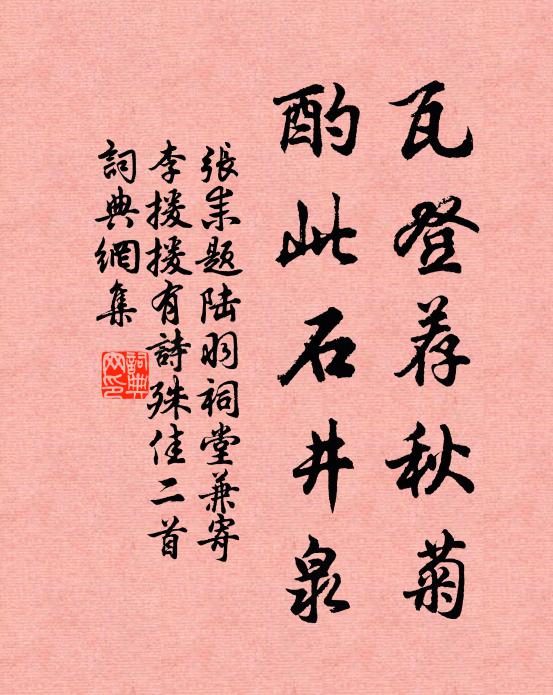 瓦登荐秋菊
酌此石井泉
張耒題陆羽祠堂兼寄
李援援有詩殊佳二首
詞典網集
詞典网印